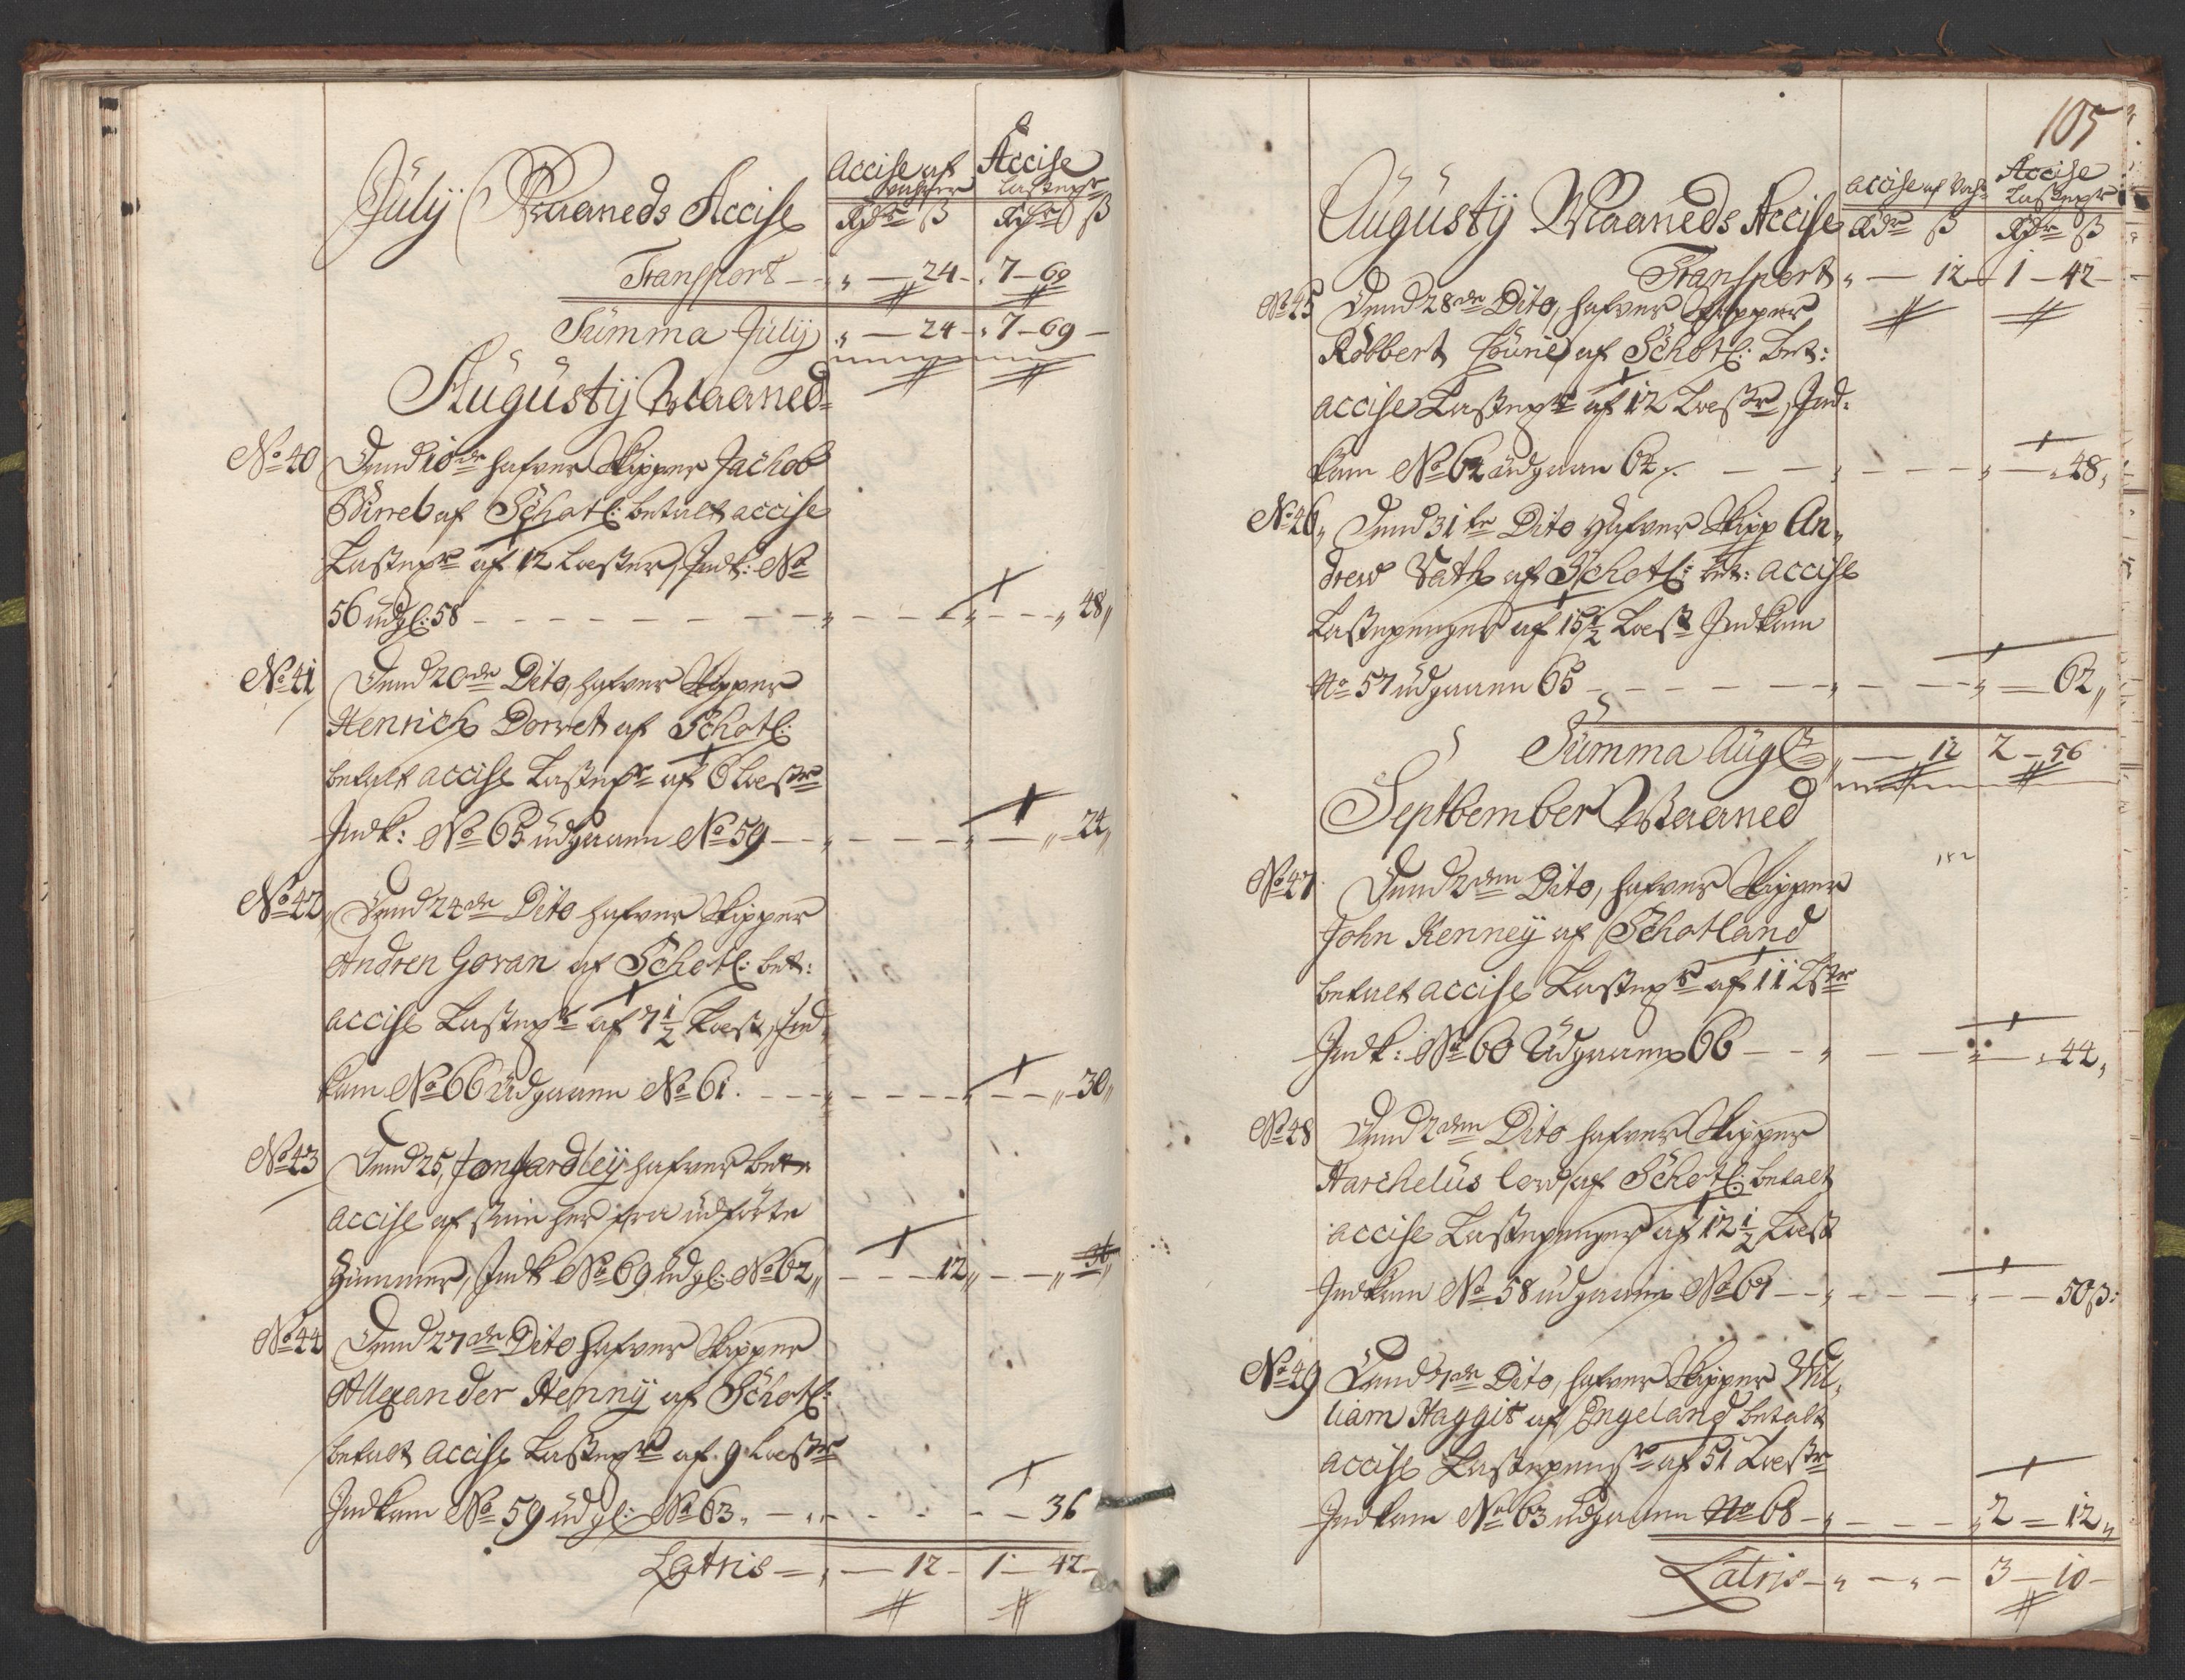 Accise af Accise
Vahrer Lastepr
Julÿ Maaneds Accise Rdr ß Rdr ß
Transport - „ - 24 - „ 7 - 69
Summa Julÿ „ - 24 - „ 7 - 69 -
Augustÿ Maaned
No 40 Dend 10de hafver Skipper Jachob
Birrel af Schotl: betalt accise
Lastepr af 12 Læster, Indk: No
56 udgl: 58 - - - „ - - „ - - „ 48„
No 41 Dend 20de Dito, hafver Skipper
Henrich Dorret af Schotl:
betalt accise Lastepr af 6 Læstr
Indk: No 65 udgaaen No 59 - - „ - - - „ - „ 24„
No 42 Dend 24de Dito hafver Skipper
Andren Goran af Schotl: bet:
accise Lastepr af 7½ Læst, Ind
kom No 66 Udgaaen No 61. - - „ - - - „ - - „ 30„
No 43 Dend 25, Jon Jardleÿ hafver bet
accise af sine her fra udførte
Hummer, Indk No 69 udgl: No 62„ - - - 12„ - - „ 36„
No 44 Dend 27de Dito hafver Skipper
Allexander Hennÿ af Schotl:
betalt accise Lastepr af 9 Læstr
Indkom No 59 udgl: No 63„ - - - - - 36
Latris - „ - 12 - 1 - 42 -
105
accise af Vahr Accise
Lastepr
Augustÿ Maaneds Accise Rdr ß Rdr ß
Transport „ - 12 - 1 - 42 -
No 45 Dend 28de Dito, hafver Skipper
Robbert Lourie af Schotl: bet:
accise Lastepr af 12 Læstr, Ind-
kom No 62 udgaaen 64 - - „ - - - „ - „ 48„
No 46„ Dend 31te Dito Hafver Skipp An„
drew Vath af Schotl: bet: accise
Lastepenger af 15½ Læst Indkom
No 57 udgaaen 65 - - - - „ - - „ = 62„
Summa Augt „ - 12 2 - 56
Septbember Maaned
No 47 Dend 2den Dito, hafver Skipper
John Kenneÿ af Schotland
betalt accise Lastepr af 11 Lstr
Indk: No 60 Udgaaen 66 - - „ - - - „ 44„
No 48 Dend 2den Dito hafver Skipper
Harchelus Low, af Schotl: betalt
accise Lastepenger af 12½ Læst
Indkom No 58 udgaaen No 67 - - „ - - - - 50ß:
No 49 Dend 7de Dito, hafver Skipper Wil„
liam Haggis af Engeland betalt
accise Lastepengr af 51 Læstr
Indkom No 63 udgaaen No 68 - „ - - - „ 2 = 12„
Latris - „ - „ - 3 - 10 -